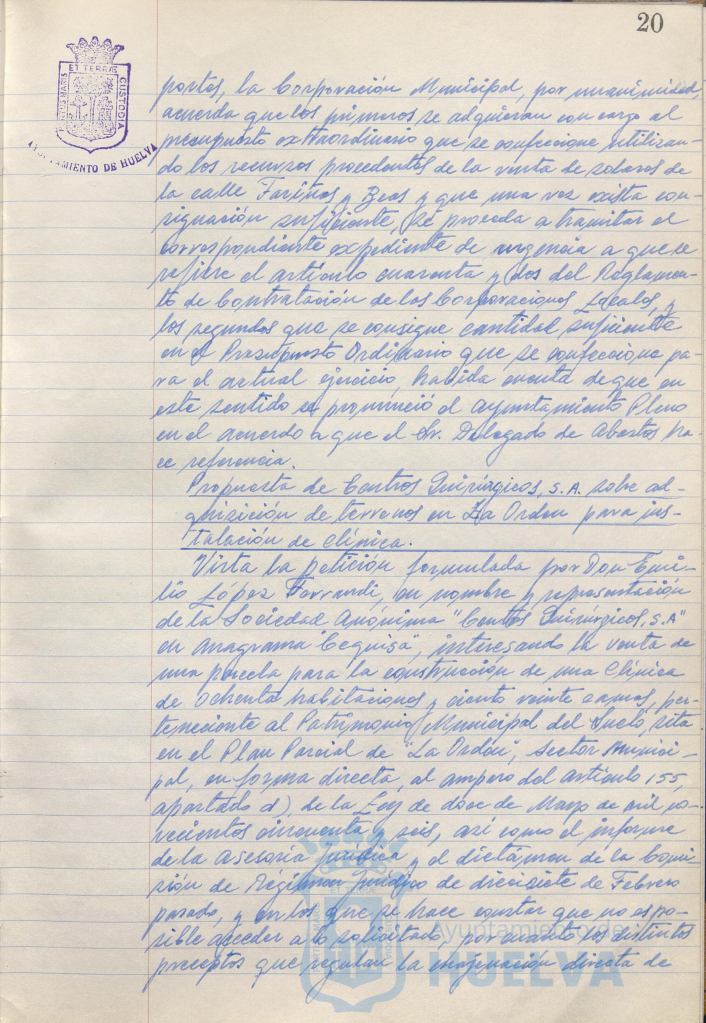 20
PORTUS MARIS ET TERRAE CUSTODIA
AYUNTAMIENTO DE HUELVA
portes, la Corporación Municipal, por unanimidad,
acuerda que los primeros se adquieran con cargo al
presupuesto extraordinario que se confeccione utilizan-
do los recursos procedentes de la venta de solares de
la calle Fariñas y Beas y que una vez exista con-
signación suficiente, se proceda a tramitar el
correspondiente expediente de urgencia a que se
refiere el artículo cuarenta y dos del Reglamen-
to de Contratación de las Corporaciones Locales, y
los segundos que se consigne cantidad suficiente
en el Presupuesto Ordinario que se confeccione pa-
ra el actual ejercicio, habida cuenta de que en
este sentido se pronunció el Ayuntamiento Pleno
en el acuerdo a que el Sr. Delegado de Abastos ha-
ce referencia.
Propuesta de Centros Quirúrgicos, S.A. sobre ad-
quisición de terrenos en La Orden para ins-
talación de clínica.
Vista la petición formulada por Don Emi-
lio López Ferrandi, en nombre y representación
de la Sociedad Anónima "Centros Quirúrgicos, S.A"
en anagrama "Cequisa", interesando la venta de
una parcela para la construcción de una Clínica
de ochenta habitaciones y ciento veinte camas, per-
teneciente al Patrimonio Municipal del Suelo, sita
en el Plan Parcial de "La Orden", sector munici-
pal, en forma directa, al amparo del artículo 155,
apartado d), de la Ley de doce de Mayo de mil no-
vecientos cincuenta y seis, así como el informe
de la Asesoría Jurídica y el dictámen de la Comi-
sión de Régimen Jurídico de diecisiete de Febrero
pasado, y en los que se hace constar que no es po-
sible acceder a lo solicitado, por cuanto los distintos
preceptos que regulan la enajenación directa de
Ayuntamiento de
HUELVA